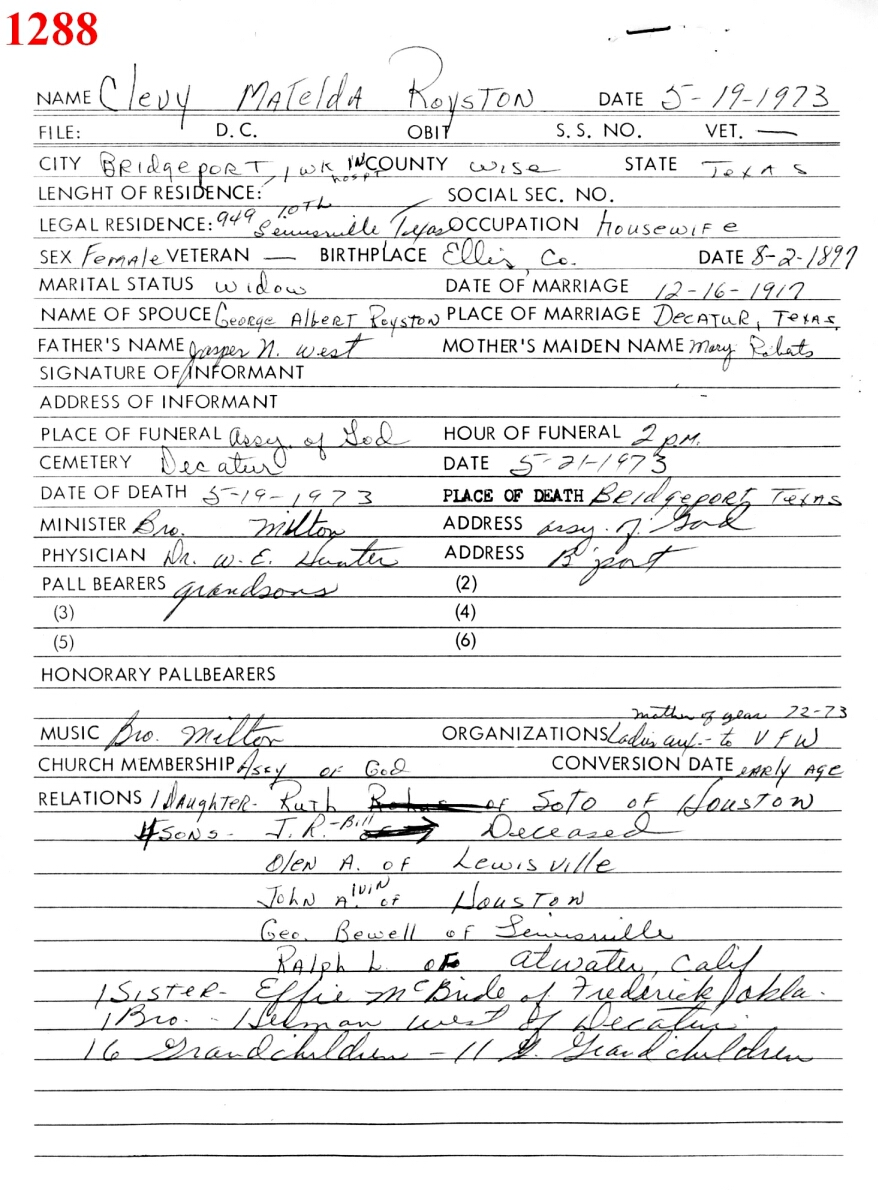 1288
NAME Clevy Matelda Royston DATE 5-19-1973
FILE: D.C. OBIT S.S. NO. VET. —
CITY Bridgeport, 1 wk in hospt COUNTY Wise STATE Texas
LENGHT OF RESIDENCE: SOCIAL SEC. NO.
LEGAL RESIDENCE: 949 10th Lewisville Texas OCCUPATION Housewife
SEX Female VETERAN — BIRTHPLACE Ellis Co. DATE 8-2-1897
MARITAL STATUS Widow DATE OF MARRIAGE 12-16-1917
NAME OF SPOUCE George Albert Royston PLACE OF MARRIAGE Decatur, Texas
FATHER'S NAME Jasper N. West MOTHER'S MAIDEN NAME Mary Roberts
SIGNATURE OF INFORMANT
ADDRESS OF INFORMANT
PLACE OF FUNERAL Assy. of God HOUR OF FUNERAL 2 P.M.
CEMETERY Decatur DATE 5-21-1973
DATE OF DEATH 5-19-1973 PLACE OF DEATH Bridgeport, Texas
MINISTER Bro. Milton ADDRESS assy. of God
PHYSICIAN Dr. W. E. Hunter ADDRESS B'port
PALL BEARERS grandsons (2)
(3) (4)
(5) (6)
HONORARY PALLBEARERS
mother of year 72-73
MUSIC Bro. Milton ORGANIZATIONS Ladies aux.- to VFW
CHURCH MEMBERSHIP Assy of God CONVERSION DATE early age
RELATIONS 1 Daughter- Ruth of Soto of Houston
4 Sons- J.R.-Bill Deceased
Olen A. of Lewisville
John Alvin of Houston
Geo. Bewell of Lewisville
Ralph L. of Atwater, Calif
1 Sister- Effie McBride of Frederick, Okla.
1 Bro. - Herman West of Decatur.
16 Grandchildren - 11 G. Grandchildren